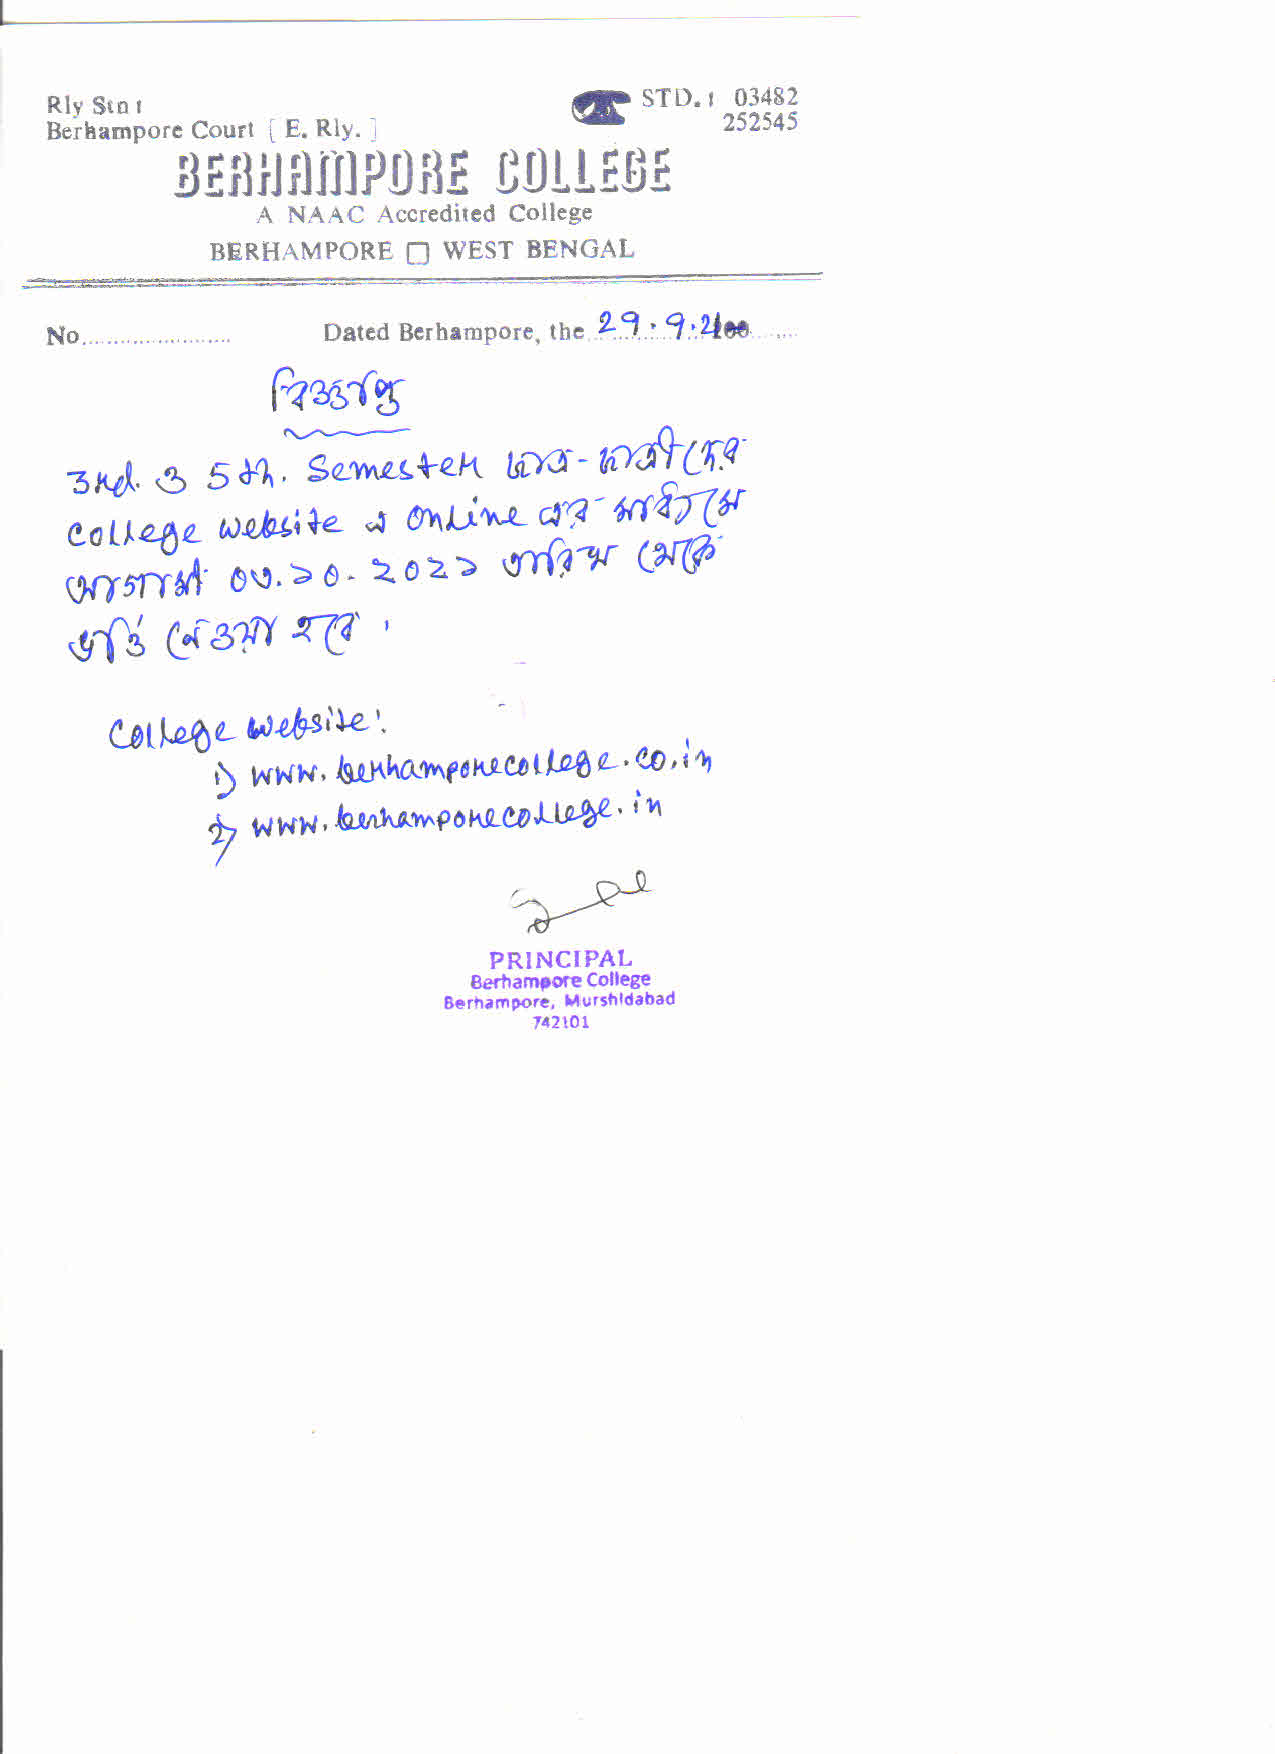 Rly Stn :
STD. : 03482
Berhampore Court [ E. Rly. ]
252545
BERHAMPORE COLLEGE
A NAAC Accredited College
BERHAMPORE □ WEST BENGAL
No.......................
Dated Berhampore, the 29.9.21
বিজ্ঞপ্তি
3rd. ও 5th. Semester ছাত্র-ছাত্রীদের
College website এ Online এর মাধ্যমে
আগামী ০৩.১০.২০২১ তারিখ থেকে
ভর্তি নেওয়া হবে।
College website:
1) www.berhamporecollege.co.in
2) www.berhamporecollege.in
PRINCIPAL
Berhampore College
Berhampore, Murshidabad
742101